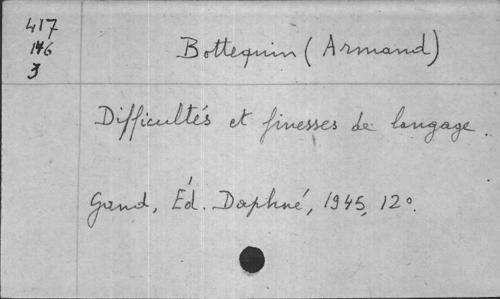 417
146
3
Bottequin (Armand)
Difficultés et finesses de langage.
Gand, Éd. Daphné, 1945, 12°.